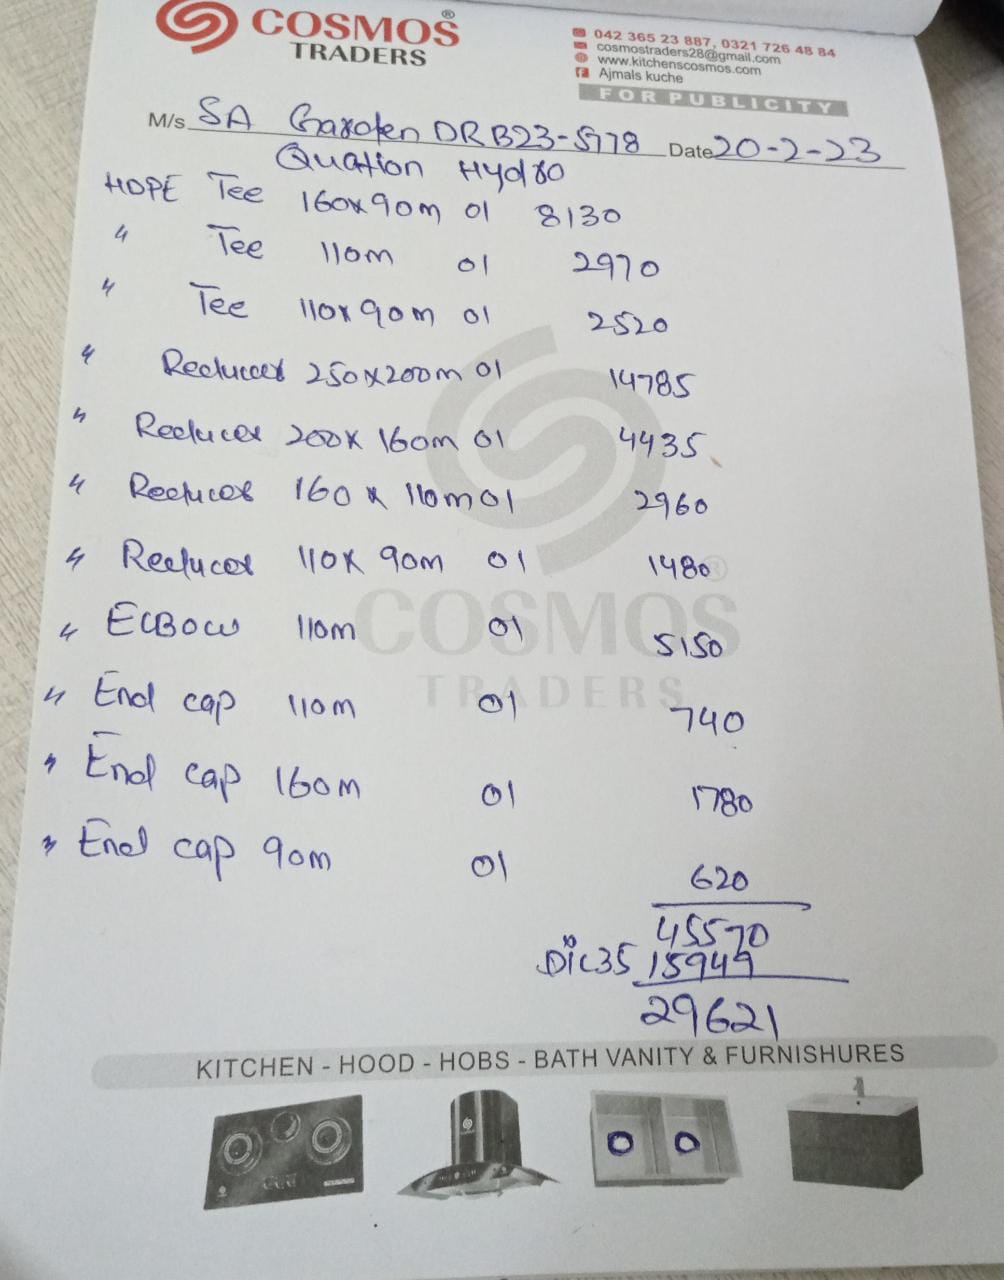 COSMOS®
TRADERS
042 365 23 887, 0321 726 48 84
cosmostraders28@gmail.com
www.kitchenscosmos.com
Ajmals kuche
FOR PUBLICITY
M/s. SA Garden DRB23-5778 Date 20-2-23
Quation Hydro
HDPE Tee 160x90m 01 8130
" Tee 110m 01 2970
" Tee 110x90m 01 2520
" Reducer 250x200m 01 14785
" Reducer 200x160m 01 4435
" Reducer 160x110m 01 2960
" Reducer 110x90m 01 1480
" ELBOW 110m 01 5150
" End cap 110m 01 740
" End cap 160m 01 1780
" End cap 90m 01 620
45570
Dic35 15949
29621
COSMOS®
TRADERS
KITCHEN - HOOD - HOBS - BATH VANITY & FURNISHURES